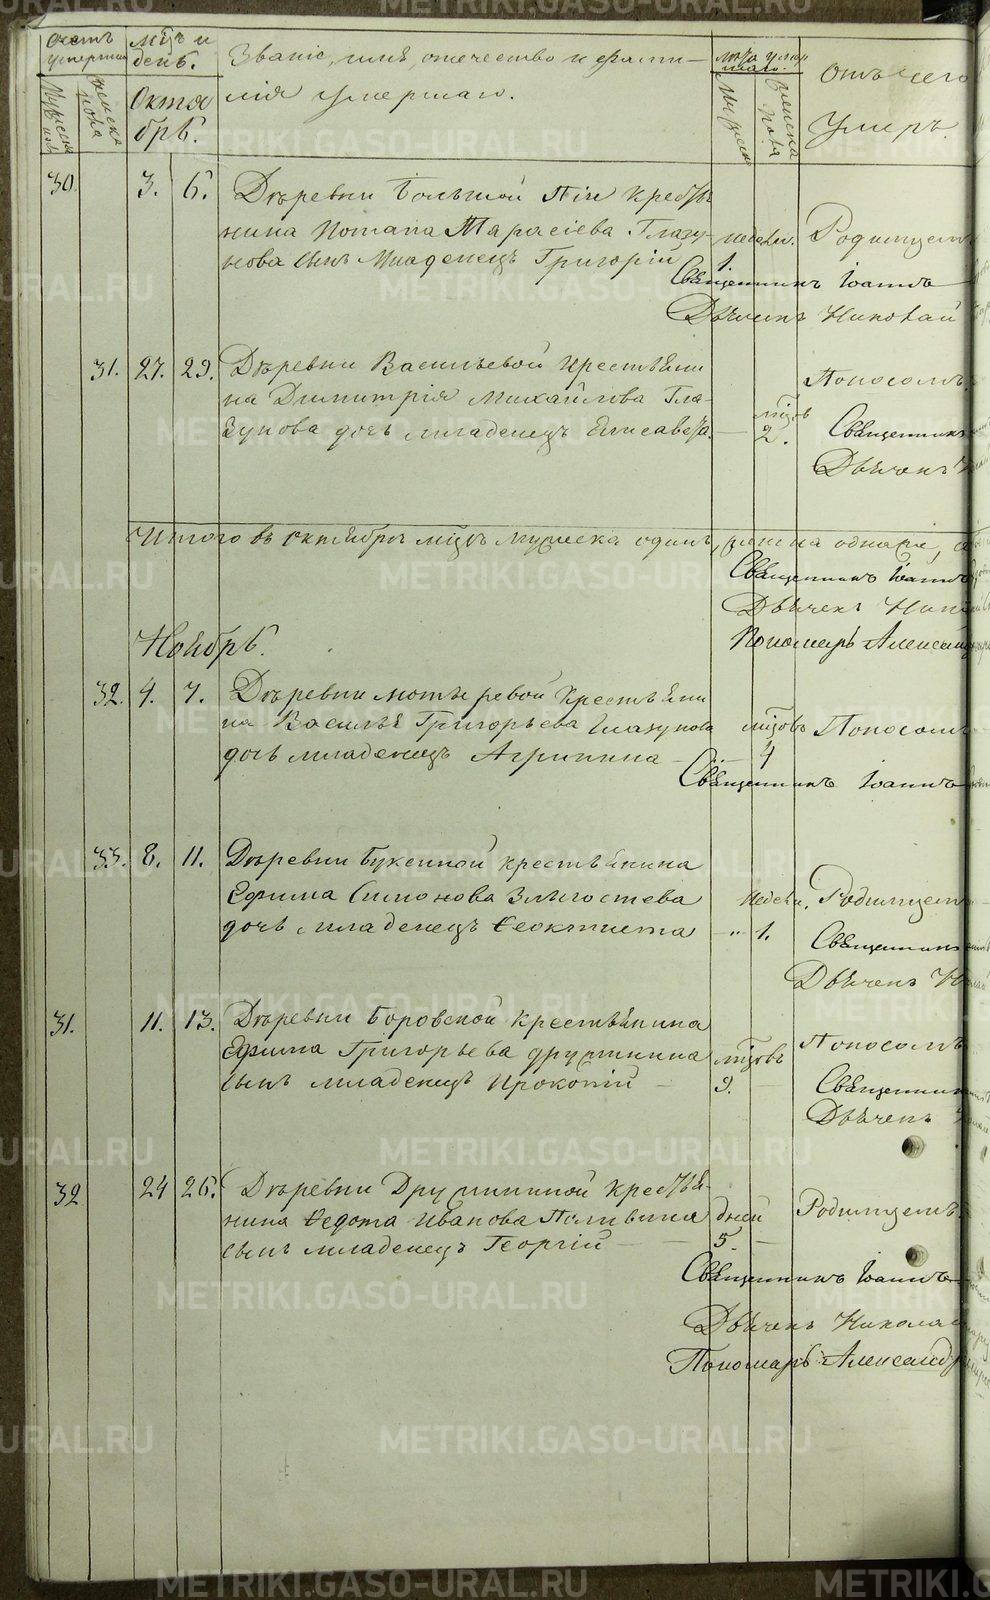 Счетъ умершихъ
Мужеска пола
женска пола
мцъ и день.
Октябрь.
Званіе, имя, отечество и фами-
лія умершаго.
лѣта умершаго.
Мужеска
женска пола
Отъ чего
Умеръ.
30. 3. 6. Деревни Большой Крестья
нина Потапа Тарасіева Глазу-
нова сынъ Младенецъ Григорій
недѣли. 1.
Родимцемъ
Священникъ Іоаннъ
Дьячекъ Николай
31. 27. 29. Деревни Васильевой Крестьяни
на Димитрія Михайлова Гла-
зунова дочь младенецъ Елисавета.
мцовъ 2.
Поносомъ
Священникъ
Дьячекъ
Итого въ октябрѣ мцѣ мужеска одинъ, женска одна
Священникъ Іоаннъ
Дьячекъ
Пономарь Александ
Ноябрь.
32. 4. 7. Деревни Мотыревой Крестьяни
на Василья Григорьева Глазунова
дочь младенецъ Агрипина
мцовъ 4
Поносомъ
Священникъ Іоаннъ
33. 8. 11. Деревни Букеиной крестьянина
Ефима Симонова Злыгостева
дочь младенецъ Ѳеоктиста
недѣли. 1.
Родимцемъ
Священникъ
Дьячекъ
31. 11. 13. Деревни Боровской Крестьянина
Ефима Григорьева Дружинина
сынъ младенецъ Прокопій
мцовъ 9.
Поносомъ
Священникъ
Дьячекъ
32 24 26. Деревни Дружининой Крестья-
нина Ѳедота Иванова Поливина
сынъ младенецъ Георгій
дней 5.
Родимцемъ
Священникъ Іоаннъ
Дьячекъ Никола
Пономарь Александр
METRIKI.GASO-URAL.RU